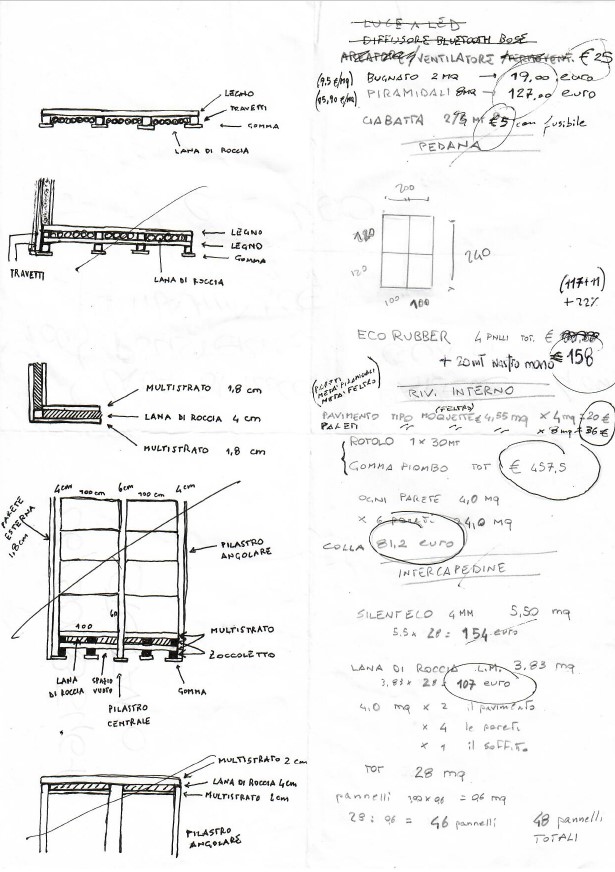 LEGNO
TRAVETTI
GOMMA
LANA DI ROCCIA
LEGNO
LEGNO
GOMMA
TRAVETTI
LANA DI ROCCIA
MULTISTRATO 1,8 cm
LANA DI ROCCIA 4 cm
MULTISTRATO 1,8 cm
4cm 6cm 4cm
100 cm 100 cm
PARETE ESTERNA 1,8cm
PILASTRO
ANGOLARE
60
100
MULTISTRATO
ZOCCOLETTO
LANA
DI ROCCIA
SPAZIO
VUOTO
GOMMA
PILASTRO
CENTRALE
MULTISTRATO 2 cm
LANA DI ROCCIA 4cm
MULTISTRATO 2cm
PILASTRO
ANGOLARE
LUCE A LED
DIFFUSORE BLUETOOTH BOSE
AREATORE/VENTILATORE €25
(9,5 €/mq) BUGNATO 2 MQ → 19,00 euro
(15,90 €/mq) PIRAMIDALI 8MQ → 127,00 euro
CIABATTA MT €5 con fusibile
PEDANA
200
120
240
120
100 100
(117+11)
+22%
ECO RUBBER 4 PNLLI TOT. €
+ 20 MT nastro mono €158
RIV. INTERNO
(FELTRO)
PAVIMENTO TIPO MOQUETTE € 4,55 mq x 4 mq = 20 €
PARETI " " " x 8 mq = 36 €
ROTOLO 1 x 30 MT
GOMMA PIOMBO TOT € 457,5
OGNI PARETE 4,0 MQ
x 6 pareti 24,0 mq
COLLA 81,2 euro
INTERCAPEDINE
SILENTECO 4 MM 5,50 mq
5.5 x 28 = 154 euro
LANA DI ROCCIA L.M. 3,83 mq
3,83 x 28 = 107 euro
4,0 mq x 2 il pavimento
x 4 le pareti
x 1 il soffitto
TOT 28 mq
pannelli = 0,6 mq
28 : 0,6 = 46 pannelli 48 pannelli
TOTALI